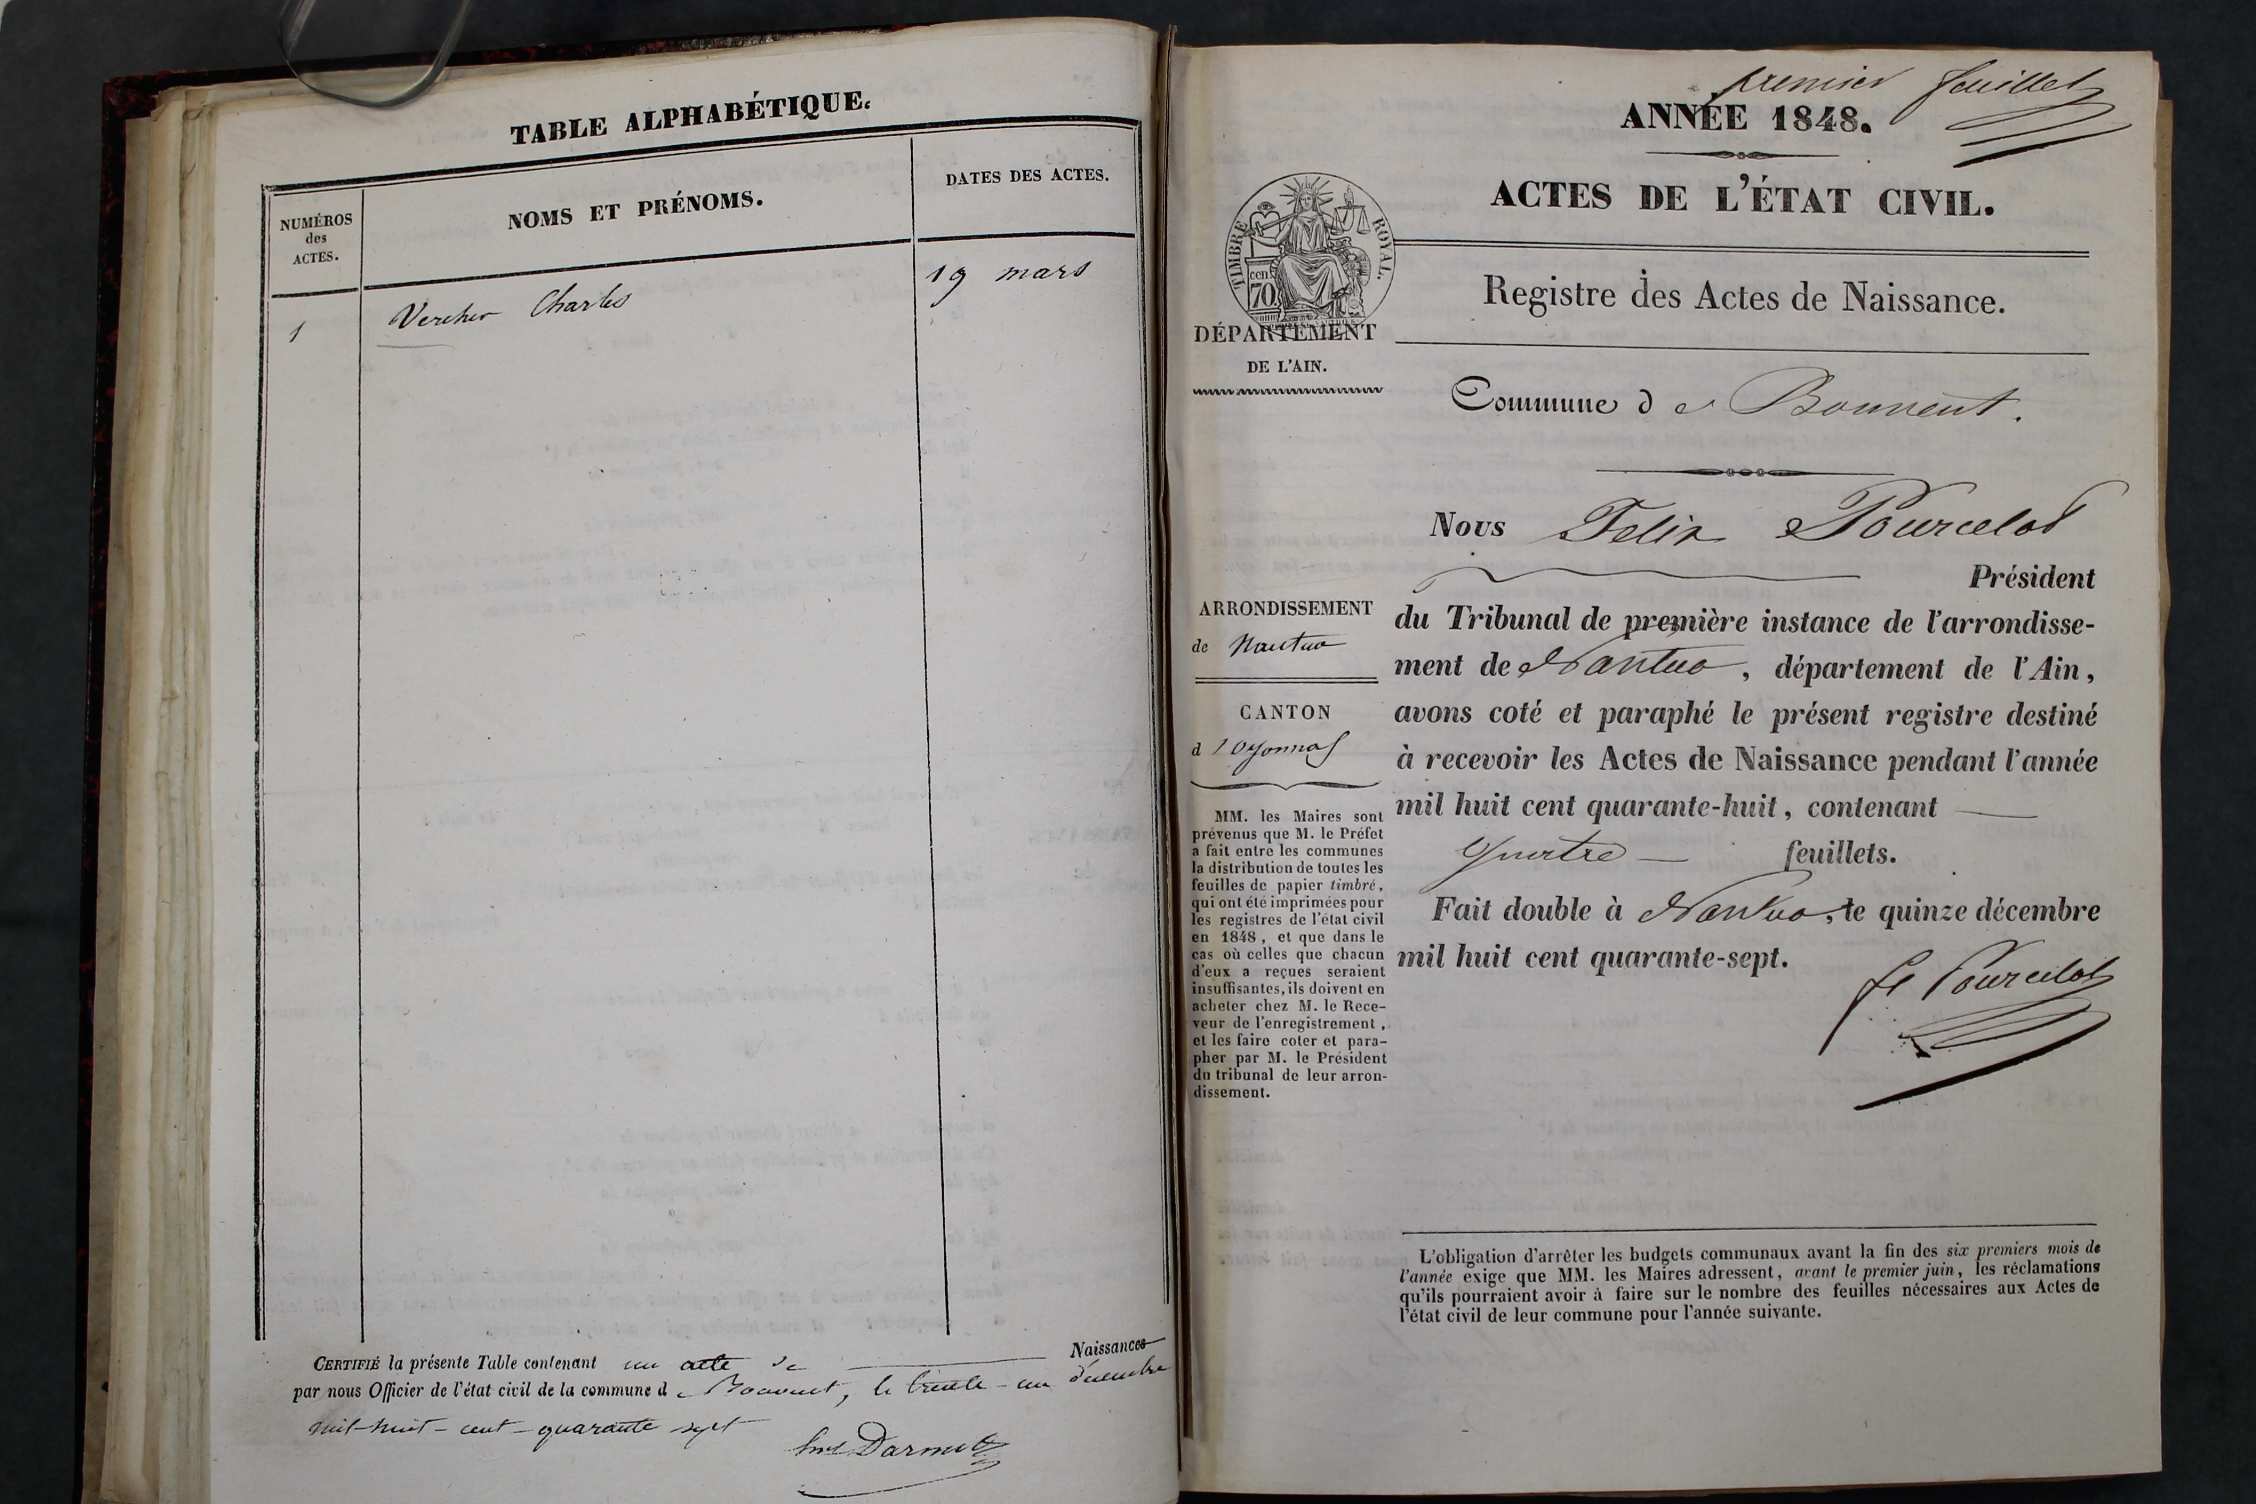 TABLE ALPHABÉTIQUE.
NUMÉROS
des
ACTES.
NOMS ET PRÉNOMS.
DATES DES ACTES.
1
Vercher Charles
19 mars
CERTIFIÉ la présente Table contenant un acte de Naissances
par nous Officier de l'état civil de la commune de Bouvent, le trente-un décembre
mil-huit-cent-quarante sept
Darmet
premier feuillet
ANNÉE 1848.
ACTES DE L'ÉTAT CIVIL.
TIMBRE ROYAL.
cen
70
DÉPARTEMENT
DE L'AIN.
Registre des Actes de Naissance.
Commune de Bouvent.
Nous Felix Pourcelot
Président
du Tribunal de première instance de l'arrondisse-
ment de Nantua, département de l'Ain,
avons coté et paraphé le présent registre destiné
à recevoir les Actes de Naissance pendant l'année
mil huit cent quarante-huit, contenant
quatre feuillets.
Fait double à Nantua, le quinze décembre
mil huit cent quarante-sept.
fe Pourcelot
ARRONDISSEMENT
de Nantua
CANTON
d'oyonnas
MM. les Maires sont
prévenus que M. le Préfet
a fait entre les communes
la distribution de toutes les
feuilles de papier timbré,
qui ont été imprimées pour
les registres de l'état civil
en 1848, et que dans le
cas où celles que chacun
d'eux a reçues seraient
insuffisantes, ils doivent en
acheter chez M. le Rece-
veur de l'enregistrement,
et les faire coter et para-
pher par M. le Président
du tribunal de leur arron-
dissement.
L'obligation d'arrêter les budgets communaux avant la fin des six premiers mois de
l'année exige que MM. les Maires adressent, avant le premier juin, les réclamations
qu'ils pourraient avoir à faire sur le nombre des feuilles nécessaires aux Actes de
l'état civil de leur commune pour l'année suivante.